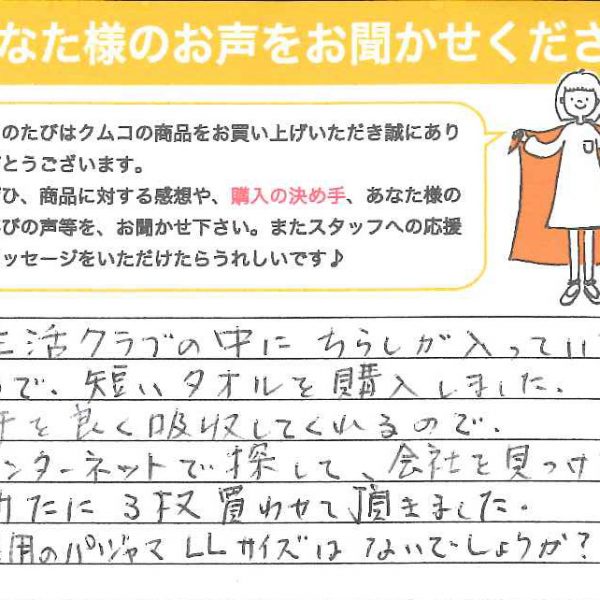 なた様のお声をお聞かせくださ
のたびはクムコの商品をお買い上げいただき誠にあり
とうございます。
ひ、商品に対する感想や、購入の決め手、あなた様の
びの声等を、お聞かせ下さい。またスタッフへの応援
ッセージをいただけたらうれしいです♪
活クラブの中に ちらしが入ってい
で、短いタオルを購入しました。
を良く吸収してくれるので、
ンターネットで探して、会社を見つけ
たに 3枚 買わせて頂きました。
用のパジャマ LLサイズは ないでしょうか?